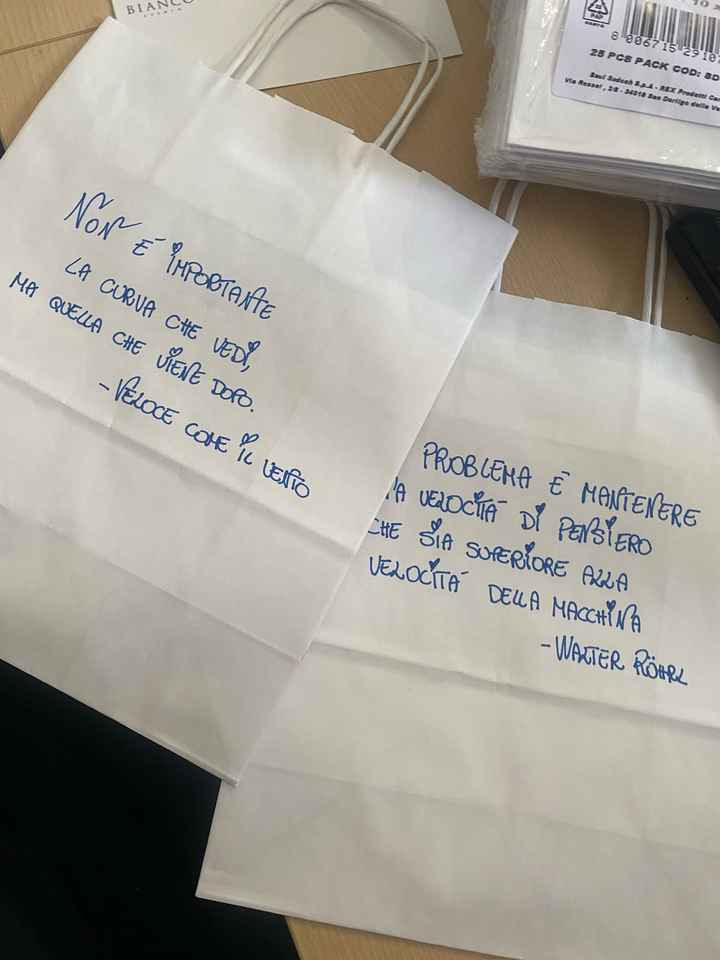 BIANCO
EVENTS
8 006715 2910
25 PCS PACK COD: SD
Saul Sadoch S.p.A. - REX Prodotti Ca
Via Ressel, 2/8 - 34018 San Dorligo della Va
NON É IMPORTANTE
LA CURVA CHE VEDI,
MA QUELLA CHE VIENE DOPO.
- VELOCE COME IL VENTO
PROBLEMA É MANTENERE
A VELOCITÁ DI PENSIERO
CHE SIA SUPERIORE ALLA
VELOCITÁ DELLA MACCHINA
- WALTER RÖHRL